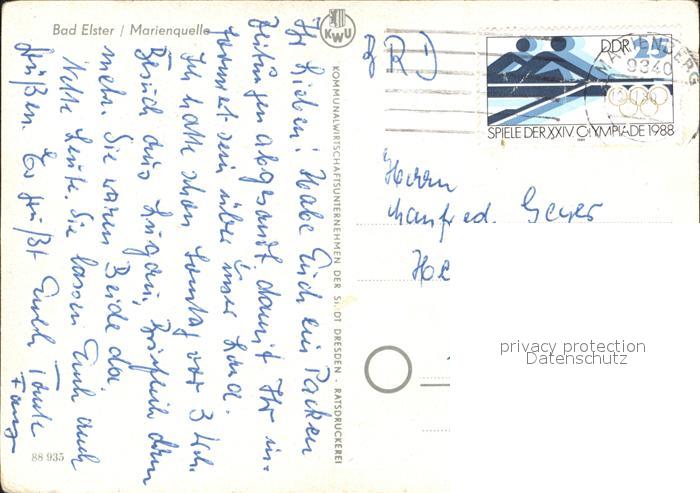 Bad Elster / Marienquelle
KWU
KOMMUNALWIRTSCHAFTSUNTERNEHMEN DER STADT DRESDEN · RATSDRUCKEREI
88 935
Ihr Lieben! Habe Euch ein Packen
Zeitungen abgesandt, damit Ihr in-
formiert seid über unser Land.
Ich hatte schon Sonntag vor 3 Wch.
Besuch aus Lugau, Brieflich dann
mehr. Sie waren Beide da.
Nette Leute. Sie lassen Euch auch
grüßen. Es grüßt Euch Tante
BRD
DDR 25
SPIELE DER XXIV. OLYMPIADE 1988
MARIENBERG
9340
Herrn
Manfred Geyer
privacy protection
Datenschutz